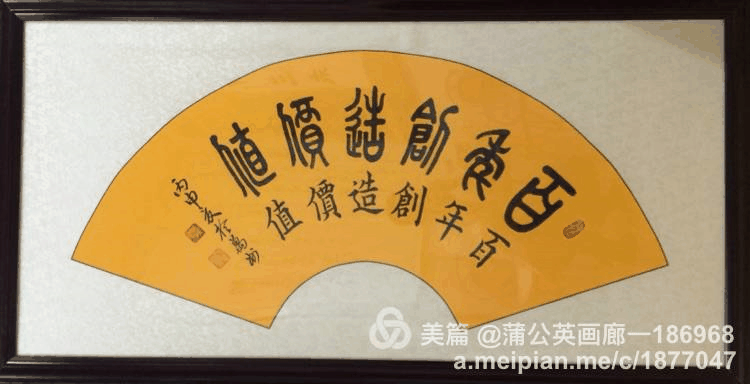 百年創造價值
百年創造價值
丙申夏於萬州
美篇 @蒲公英画廊一186968
a.meipian.me/c/1877047